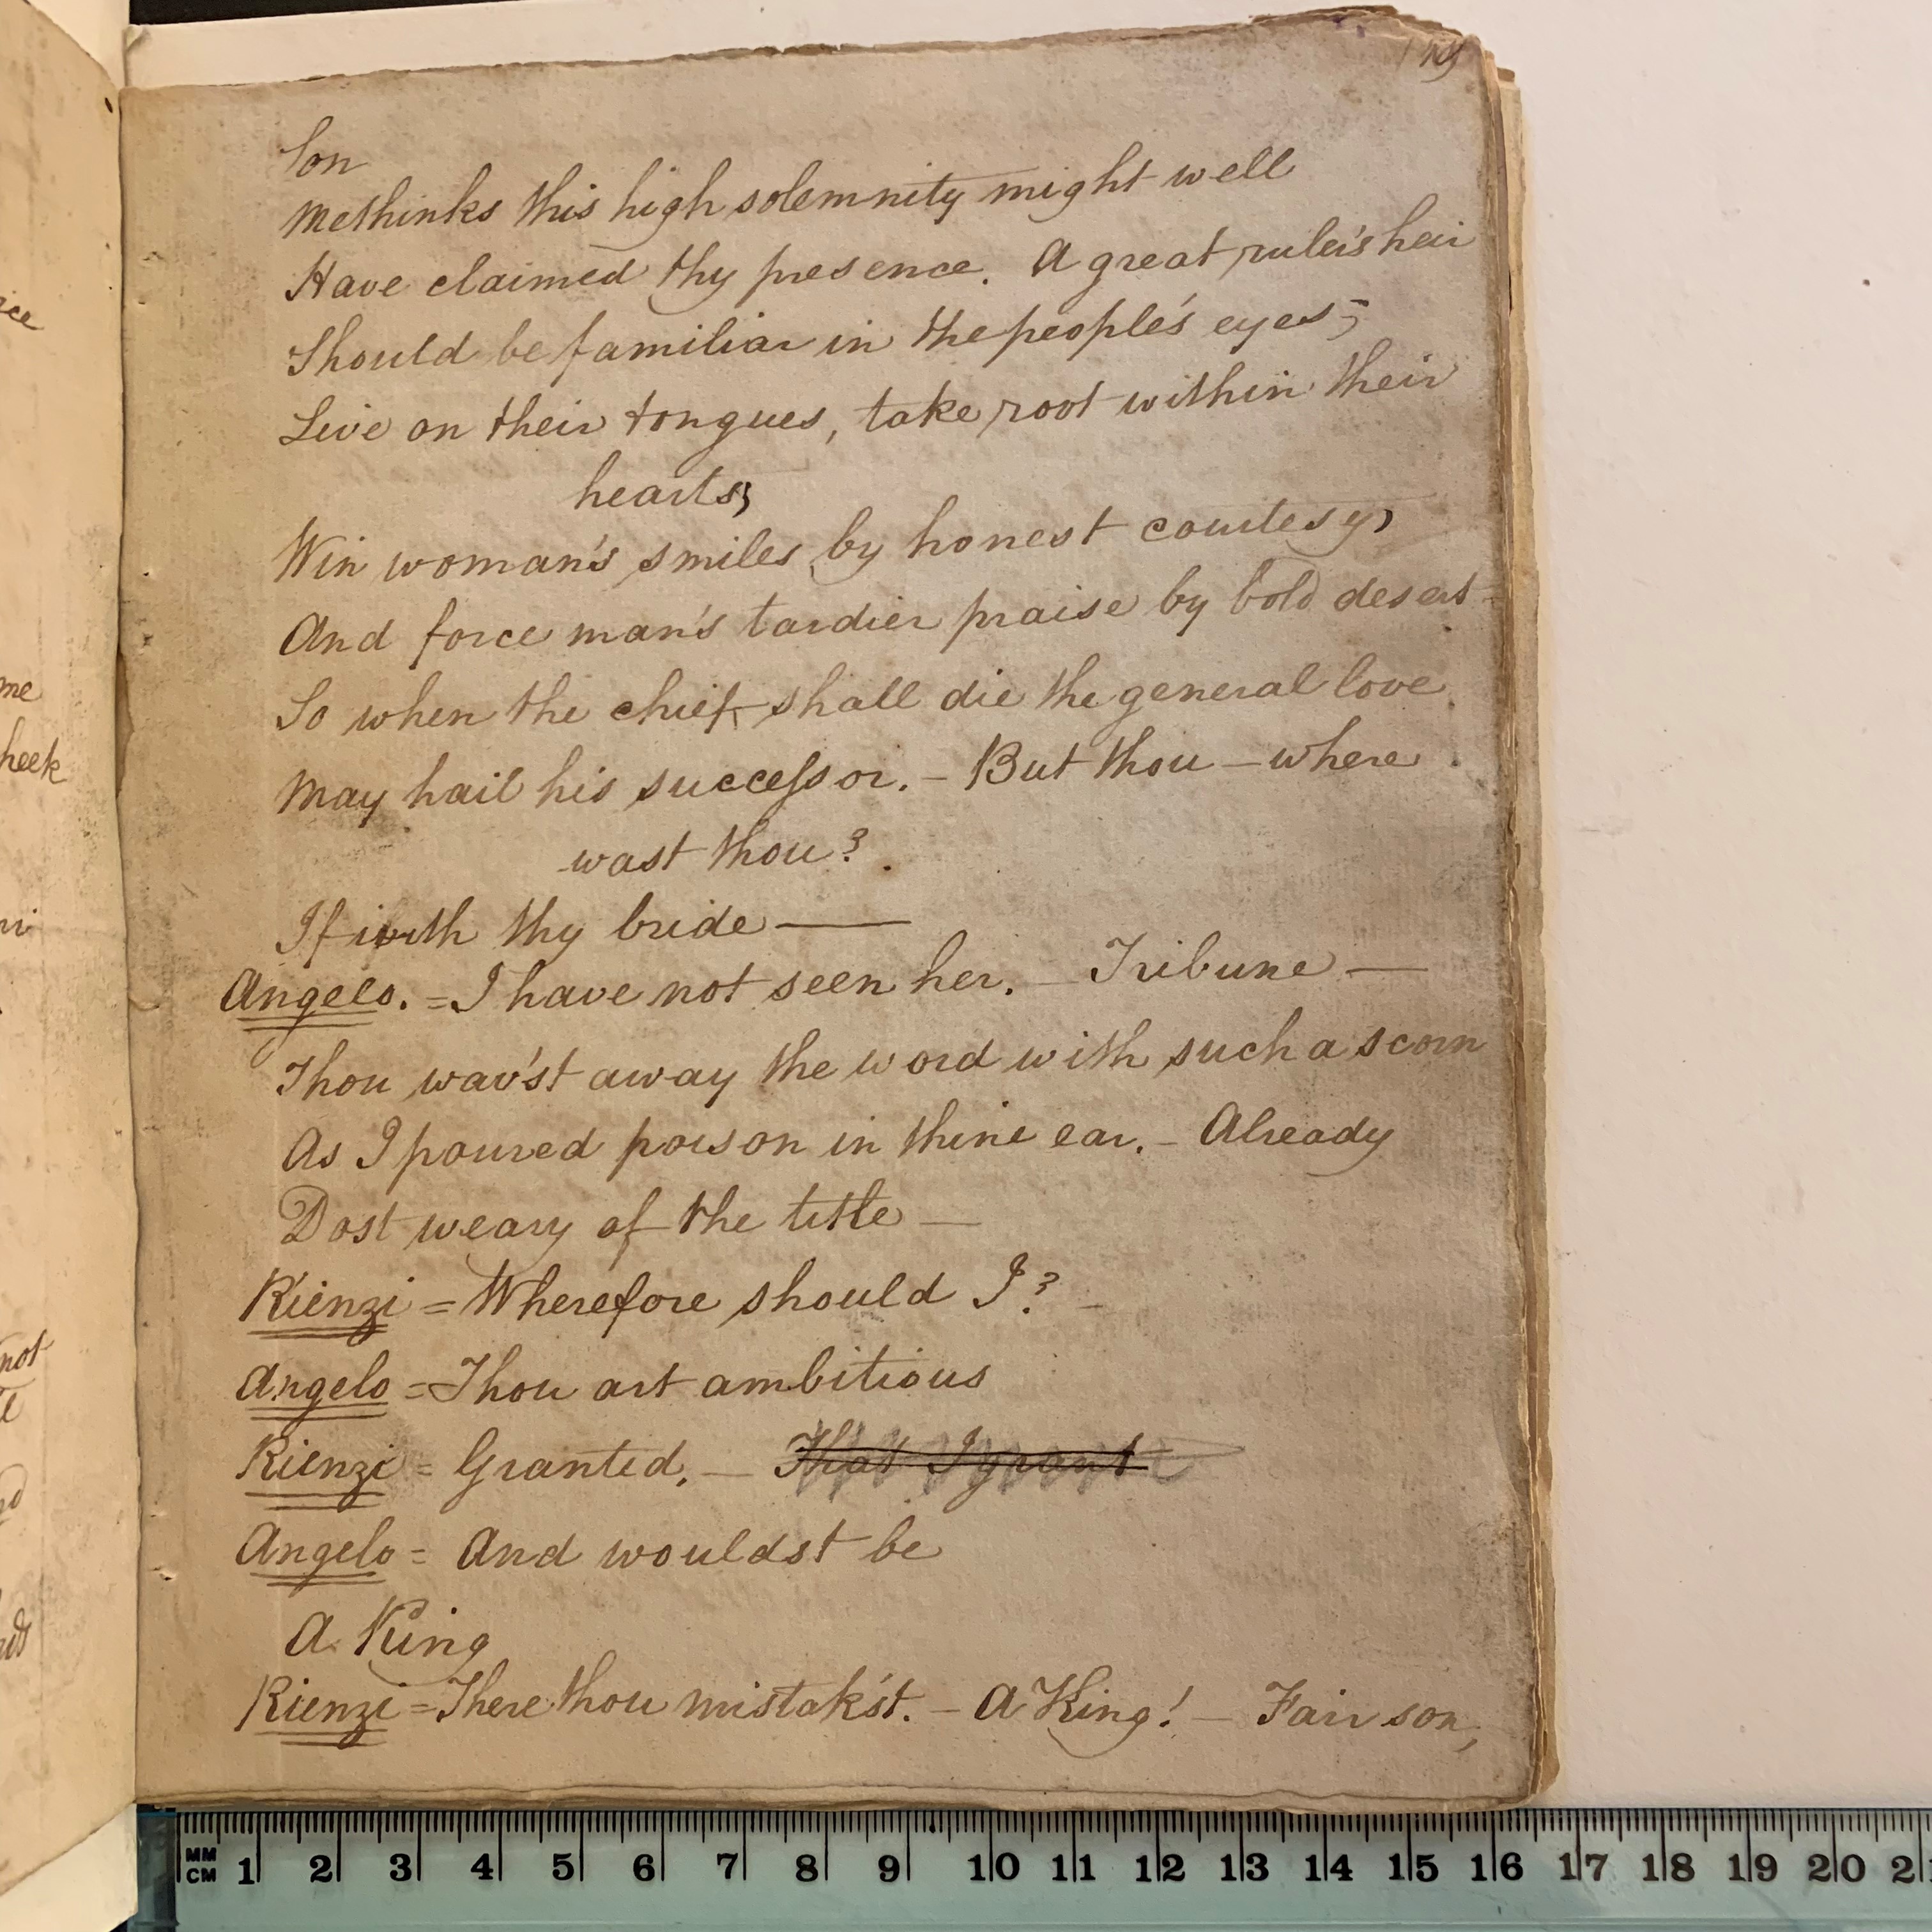 Son
Methinks this high solemnity might well
Have claimed thy presence. A great ruler's heir
Should be familiar in the people's eyes;
Live on their tongues, take root within their
hearts;
Win woman's smiles by honest courtesy,
And force man's tardier praise by bold desert
So when the chief shall die the general love
May hail his successor. – But thou – where
wast thou?
If with thy bride —
Angelo. = I have not seen her. – Tribune —
Thou wav'st away the word with such a scorn
As I poured poison in thine ear. – Already
Dost weary of the title —
Rienzi = Wherefore should I?
Angelo = Thou art ambitious
Rienzi = Granted. — That I grant
Angelo = And wouldst be
A King
Rienzi = There thou mistak'st. – A King! – Fair son,
ice
me
heek
not
MM
CM 1 2 3 4 5 6 7 8 9 10 11 12 13 14 15 16 17 18 19 20